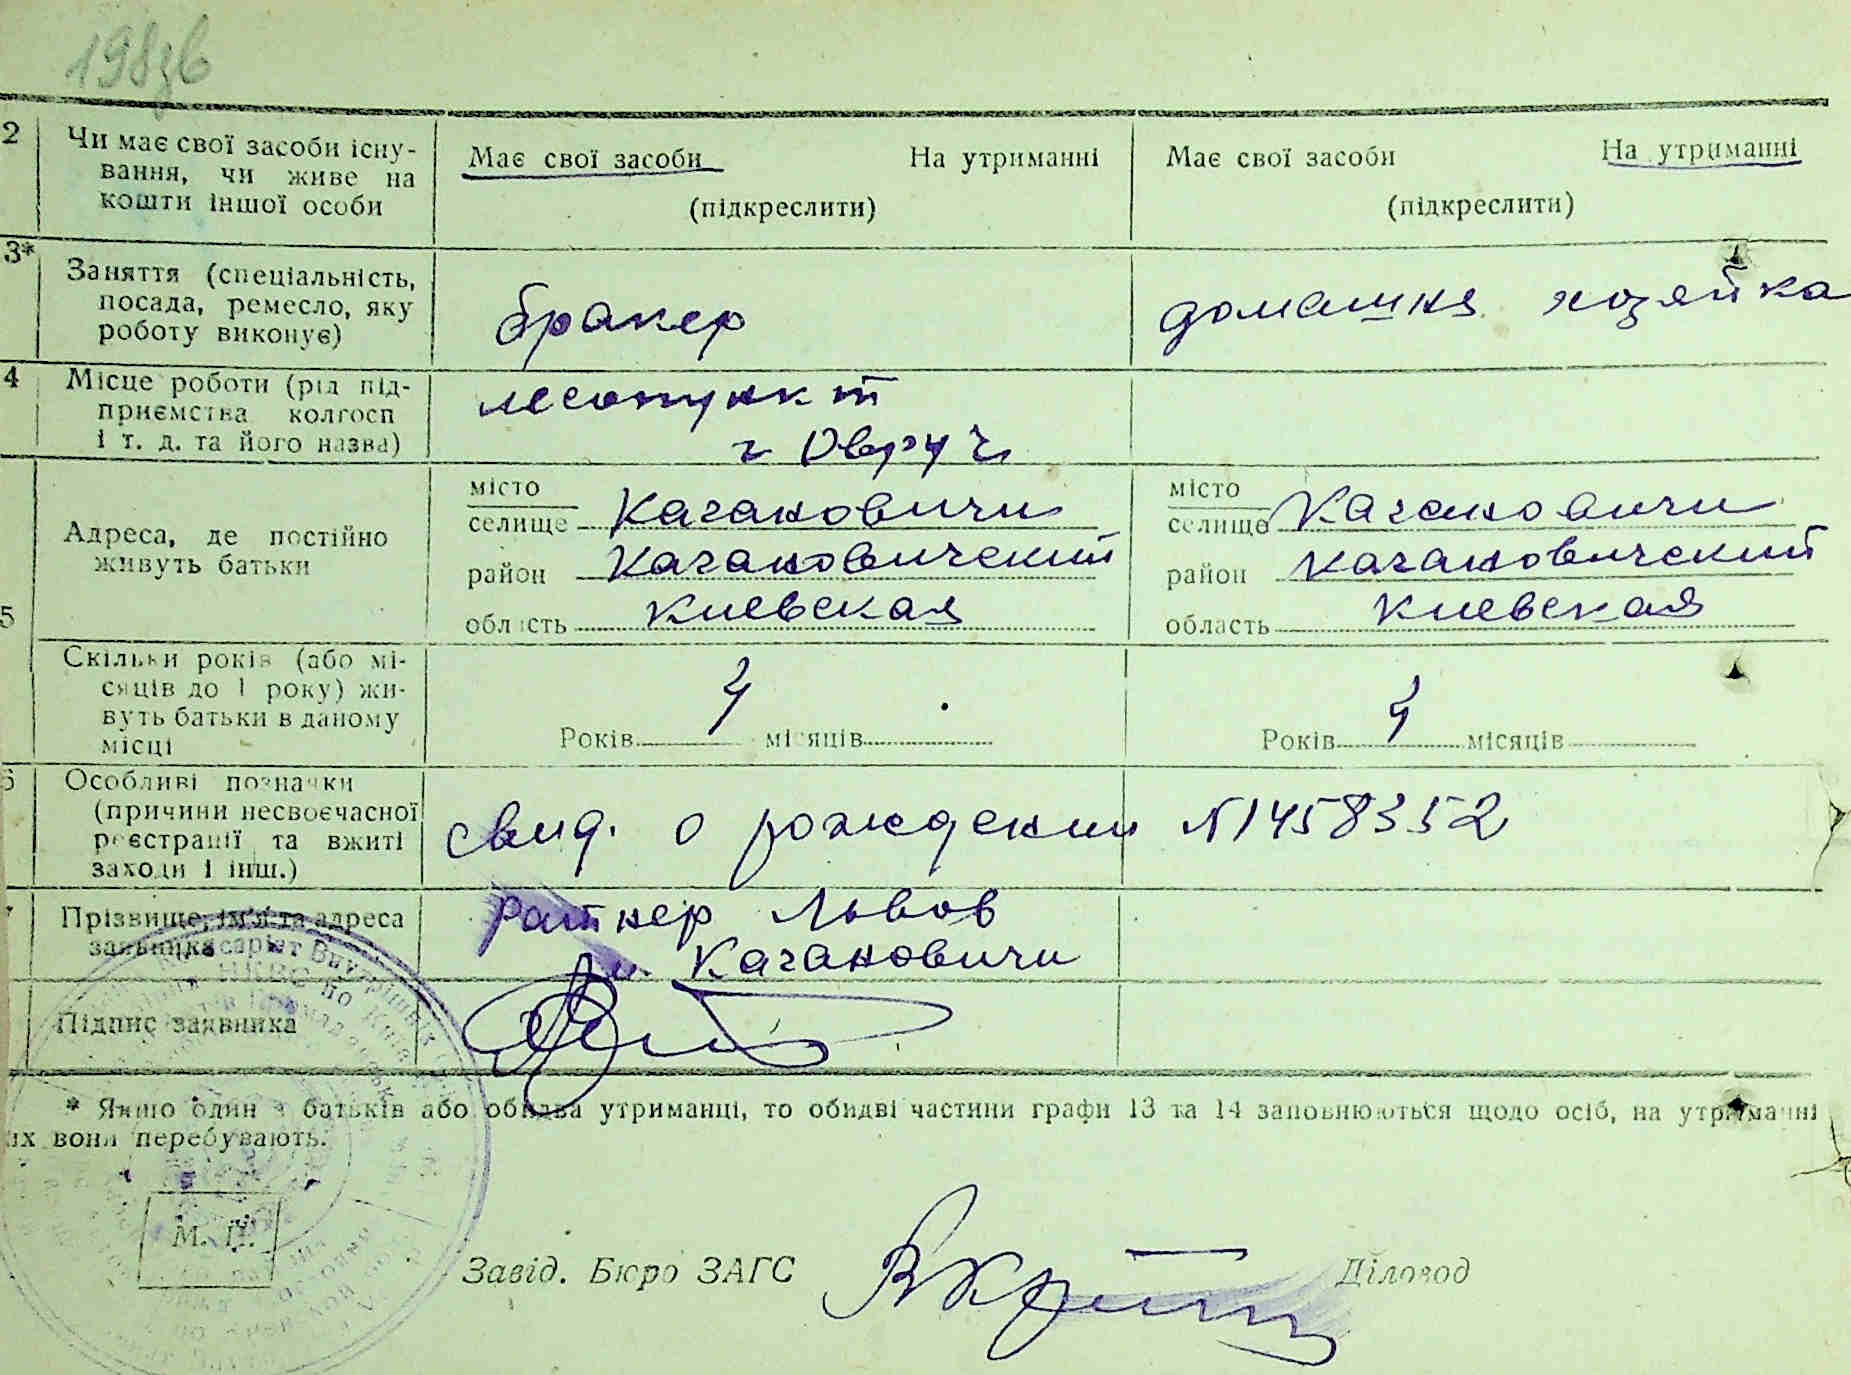 198зв
2 Чи має свої засоби існу-
вання, чи живе на
кошти іншої особи
Має свої засоби На утриманні
(підкреслити)
Має свої засоби На утриманні
(підкреслити)
3* Заняття (спеціальність,
посада, ремесло, яку
роботу виконує)
бракер
домашня хозяйка
4 Місце роботи (рід під-
приємства колгосп
і т. д. та його назва)
лесопункт
г Овруч
5 Адреса, де постійно
живуть батьки
місто
селище Кагановичи
район Кагановичский
область Киевская
місто
селище Кагановичи
район Кагановичский
область Киевская
Скільки років (або мі-
сяців до 1 року) жи-
вуть батьки в даному
місці
Років 4 місяців
Років 4 місяців
6 Особливі позначки
(причини несвоєчасної
реєстрації та вжиті
заходи і інш.)
свид. о рождении №1458352
Прізвище, ім'я та адреса
заявника
Ратнер Львов
м. Кагановичи
Підпис заявника
* Якщо один з батьків або обидва утриманці, то обидві частини графи 13 та 14 заповнюються щодо осіб, на утриманні
их вони перебувають.
М. П.
Завід. Бюро ЗАГС
Діловод